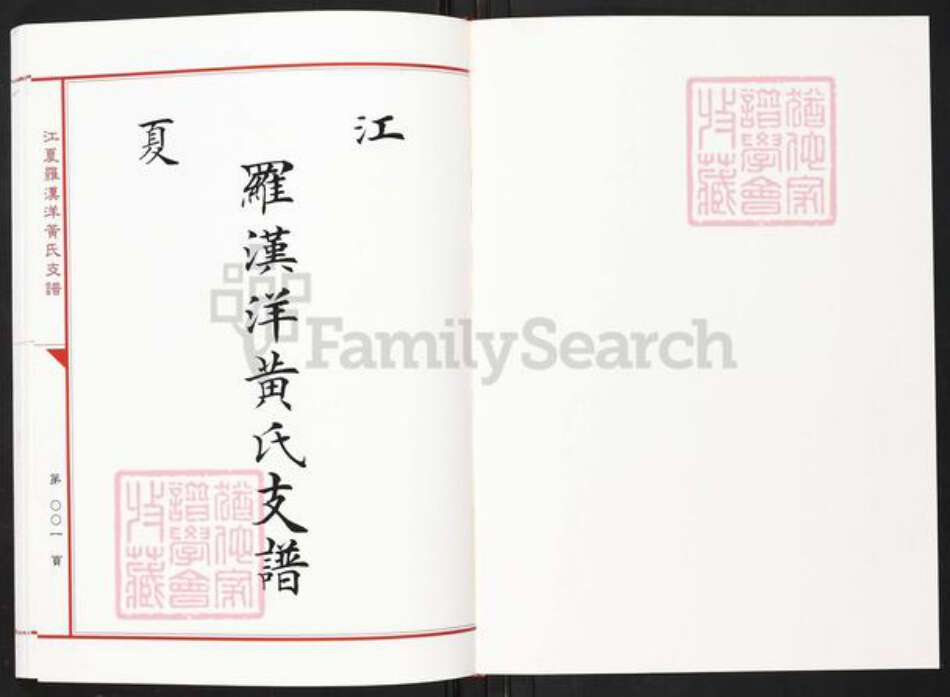 猶他家
譜學會
收藏
江夏
羅漢洋黃氏支譜
江夏羅漢洋黃氏支譜
第〇〇一頁
猶他家
譜學會
收藏
FamilySearch